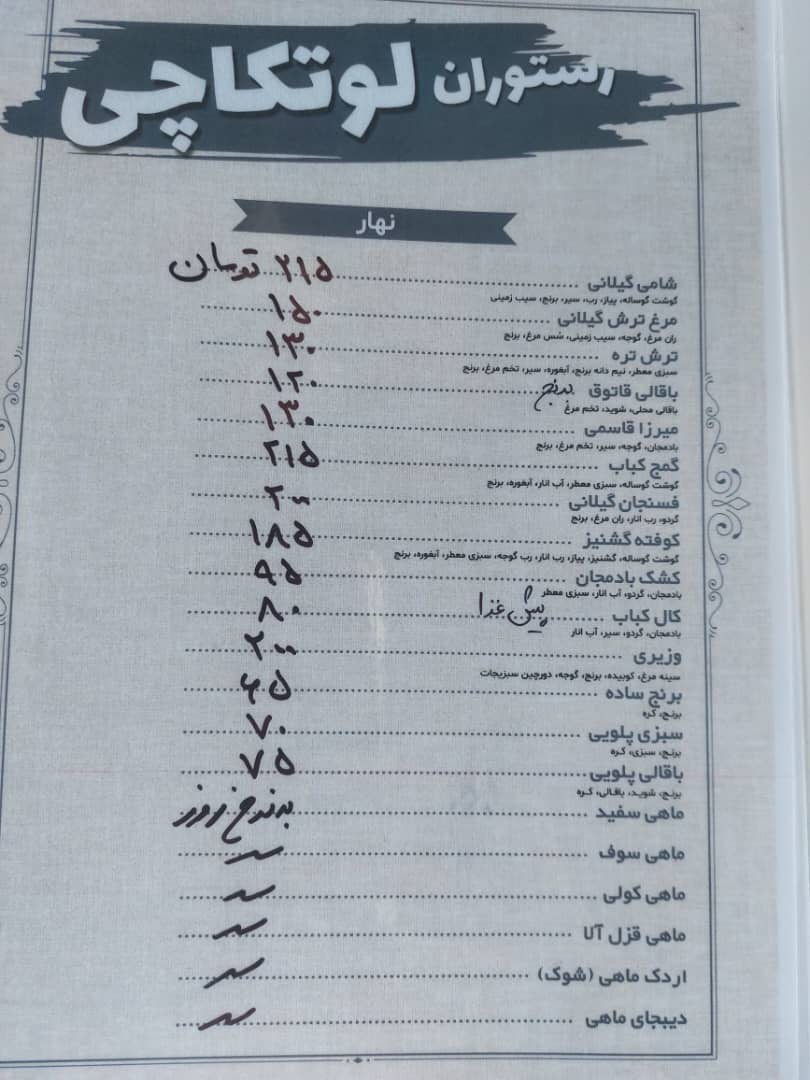 رستوران لوتکاچی
نهار
شامی گیلانی ۲۱۵ تومان
گوشت گوساله، پیاز، رب، سیر، برنج، سیب زمینی
مرغ ترش گیلانی ۱۵۰
ران مرغ، گوجه، سیب زمینی، سُس مرغ، برنج
ترش تره ۱۳۰
سبزی معطر، نیم دانه برنج، آبغوره، سیر، تخم مرغ، برنج
باقالی قاتوق برنج ۱۲۰
باقالی محلی، شوید، تخم مرغ
میرزا قاسمی ۱۳۰
بادمجان، گوجه، سیر، تخم مرغ، برنج
گمج کباب ۲۱۵
گوشت گوساله، سبزی معطر، آب انار، آبغوره، برنج
فسنجان گیلانی ۲۰۰
گردو، رب انار، ران مرغ، برنج
کوفته گشنیز ۱۸۵
گوشت گوساله، گشنیز، پیاز، رب انار، رب گوجه، سبزی معطر، آبغوره، برنج
کشک بادمجان ۹۵
بادمجان، گردو، آب انار، سبزی معطر
کال کباب پیش غذا ۸۰
بادمجان، گردو، سیر، آب انار
وزیری ۲۰۰
سینه مرغ، کوبیده، برنج، گوجه، دورچین سبزیجات
برنج ساده ۶۵
برنج، کره
سبزی پلویی ۷۰
برنج، سبزی، کره
باقالی پلویی ۷۵
برنج، شوید، باقالی، کره
ماهی سفید به نرخ روز
ماهی سوف
ماهی کولی
ماهی قزل آلا
اردک ماهی (شوک)
دیبجای ماهی